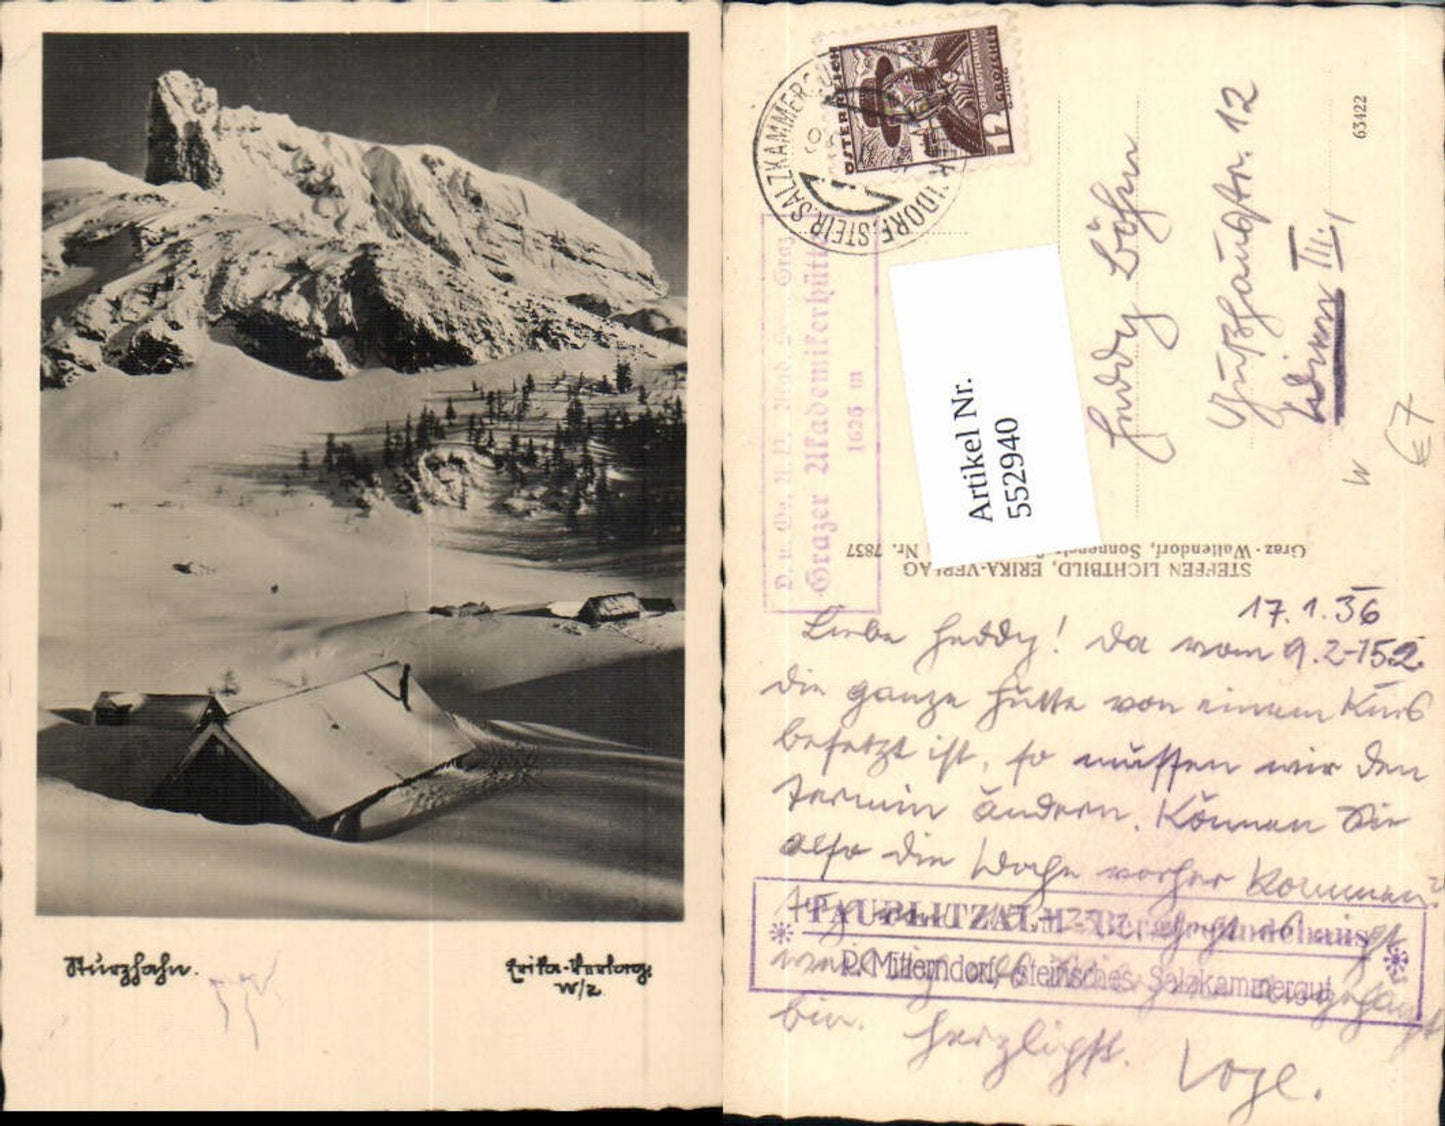 Sturzhahn.
Erika-Verlag.
W/2
ÖSTERREICH
12
GROSCHEN
OBERÖSTERREICH
STEIR. SALZKAMMERGUT
D. u. Oe. A. V. Akad. Sekt. Graz
Grazer Akademikerhütte
1625 m
Artikel Nr.
552940
Heddy Böhm
Gußhausstr. 12
Wien III.
W
€7
63422
STEFFEN LICHTBILD, ERIKA-VERLAG
Graz-Waltendorf, Nr. 7837
17.1.36
Liebe Heddy! Da vom 9.2-15.2
die ganze Hütte von einem Kurs
besetzt ist, so müssen wir den
Termin ändern. Können Sie
also die Woche vorher kommen?
TAUPLITZALM
P. Mitterndorf, steirisches Salzkammergut
bin. Herzlichst.